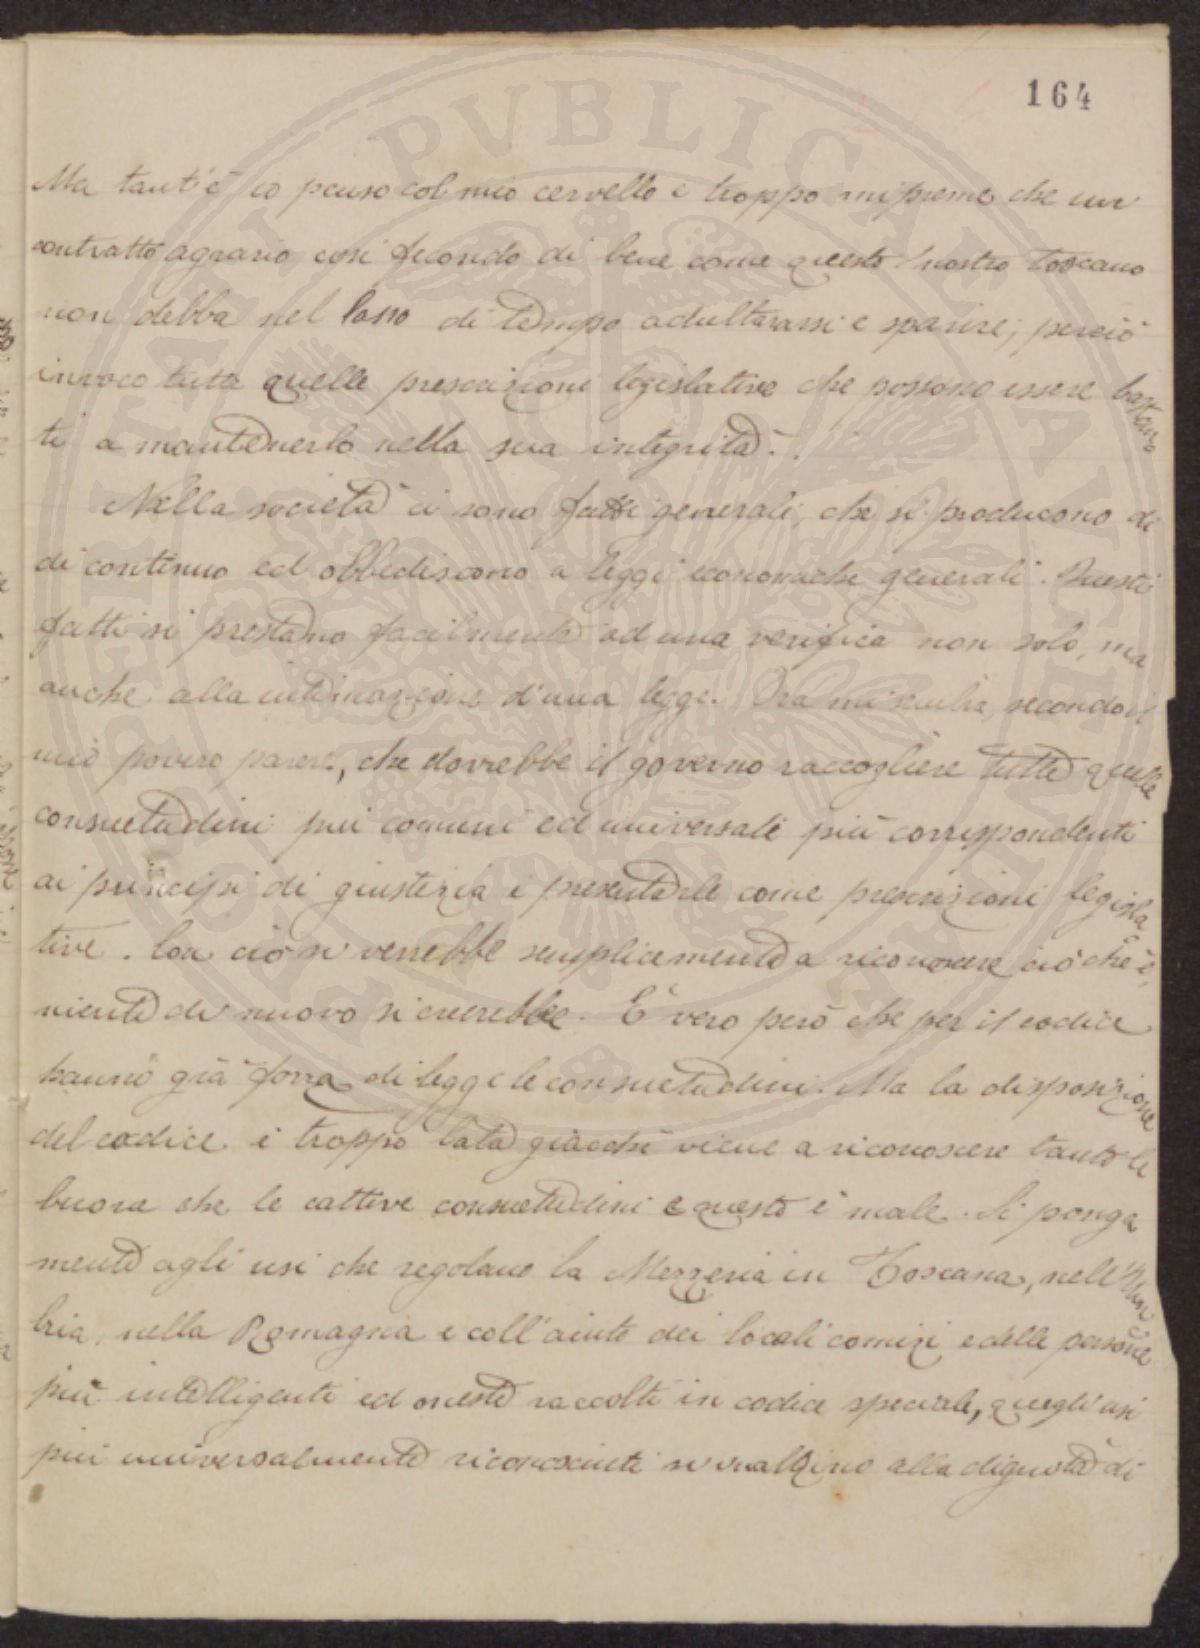 164
Ma tant'è io penso col mio cervello e troppo mi preme che un
contratto agrario così fecondo di bene come questo nostro toscano
non debba nel lasso di tempo adulterarsi e sparire; perciò
invoco tutte quelle prescrizioni legislative che possono essere bastan
ti a mantenerlo nella sua integrità.
Nella società ci sono fatti generali, che si producono di
di continuo ed obbediscono a leggi economiche generali. Questi
fatti si prestano facilmente ad una verifica non solo, ma
anche alla intimazione d'una legge. Ora mi sembra, secondo il
mio povero parere, che dovrebbe il governo raccogliere tutte quelle
consuetudini più comuni ed universali più corrispondenti
ai principi di giustizia e presentarle come prescrizioni legisla
tive. Con ciò si verrebbe semplicemente a riconoscere ciò che è,
niente di nuovo si creerebbe. È vero però che per il codice
hanno già forza di legge le consuetudini. Ma la disposizione
del codice è troppo lata giacchè viene a riconoscere tanto le
buone che le cattive consuetudini e questo è male. Si ponga
mente agli usi che regolano la Mezzeria in Toscana, nell'Um
bria, nella Romagna e coll'aiuto dei locali comizi e delle persone
più intelligenti ed oneste raccolti in codice speciale, quegli usi
più universalmente riconosciuti si inalzino alla dignità di
PVBLICAE AVGENDAE